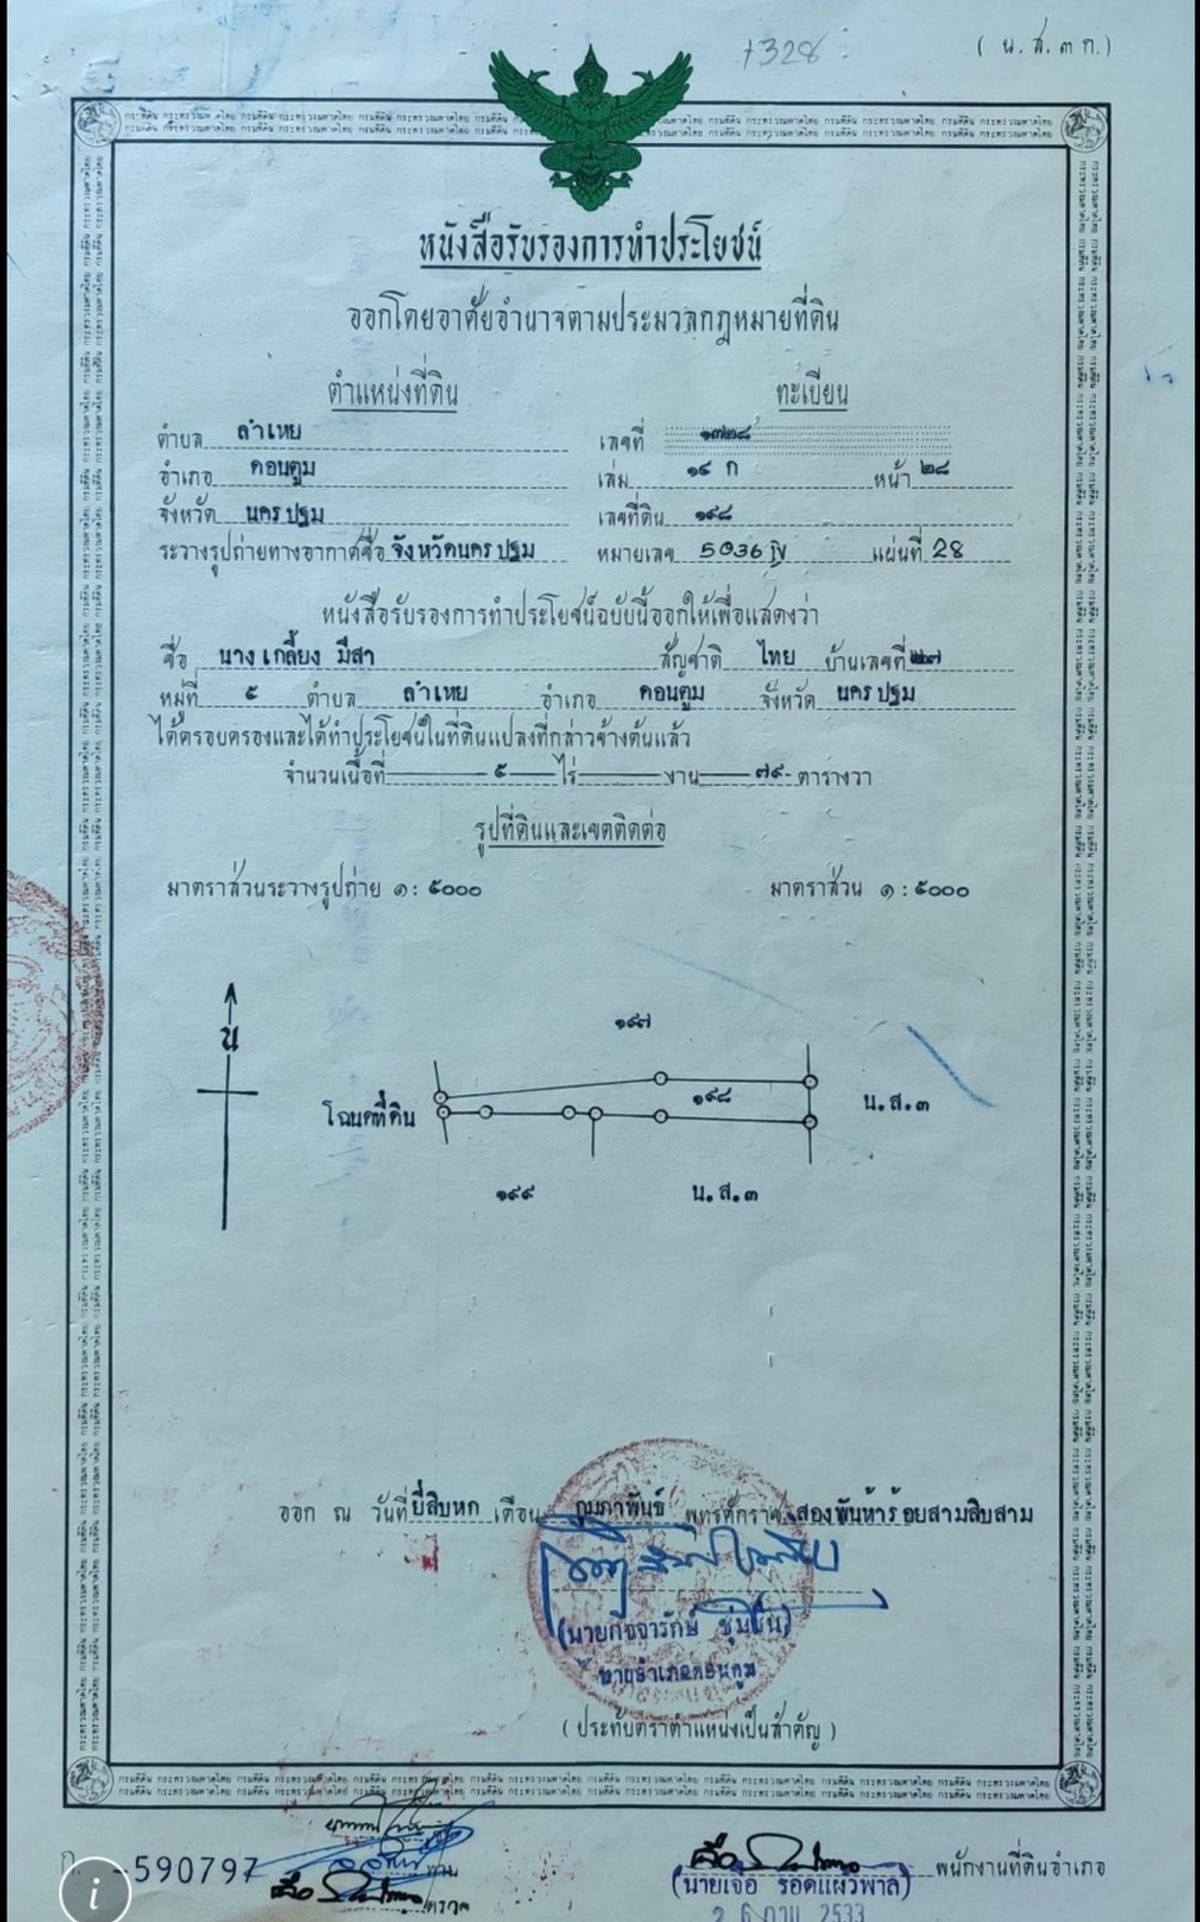 1328
( น.ส.๓ ก.)
หนังสือรับรองการทำประโยชน์
ออกโดยอาศัยอำนาจตามประมวลกฎหมายที่ดิน
ตำแหน่งที่ดิน ทะเบียน
ตำบล ลำเหย เลขที่ ๑๓๒๘
อำเภอ ดอนตูม เล่ม ๑๔ ก หน้า ๒๘
จังหวัด นครปฐม เลขที่ดิน ๑๙๘
ระวางรูปถ่ายทางอากาศชื่อ จังหวัดนครปฐม หมายเลข 5036 IV แผ่นที่ 28
หนังสือรับรองการทำประโยชน์ฉบับนี้ออกให้เพื่อแสดงว่า
ชื่อ นางเกลี้ยง มีสา สัญชาติ ไทย บ้านเลขที่
หมู่ที่ ๕ ตำบล ลำเหย อำเภอ ดอนตูม จังหวัด นครปฐม
ได้ครอบครองและได้ทำประโยชน์ในที่ดินแปลงที่กล่าวข้างต้นแล้ว
จำนวนเนื้อที่ ๕ ไร่ งาน ๗๙ ตารางวา
รูปที่ดินและเขตติดต่อ
มาตราส่วนระวางรูปถ่าย ๑ : ๕๐๐๐ มาตราส่วน ๑ : ๕๐๐๐
น
๑๙๗
โฉนดที่ดิน ๑๙๘ น.ส.๓
๑๙๙ น.ส.๓
ออก ณ วันที่ ยี่สิบหก เดือน กุมภาพันธ์ พุทธศักราช สองพันห้าร้อยสามสิบสาม
(นายกิจจารักษ์
นายอำเภอดอนตูม
( ประทับตราตำแหน่งเป็นสำคัญ )
ก. 590797 ทาน
ตรวจ
พนักงานที่ดินอำเภอ
(นายเจือ รอดแผ้วพาล)
2 6 กพ 2533